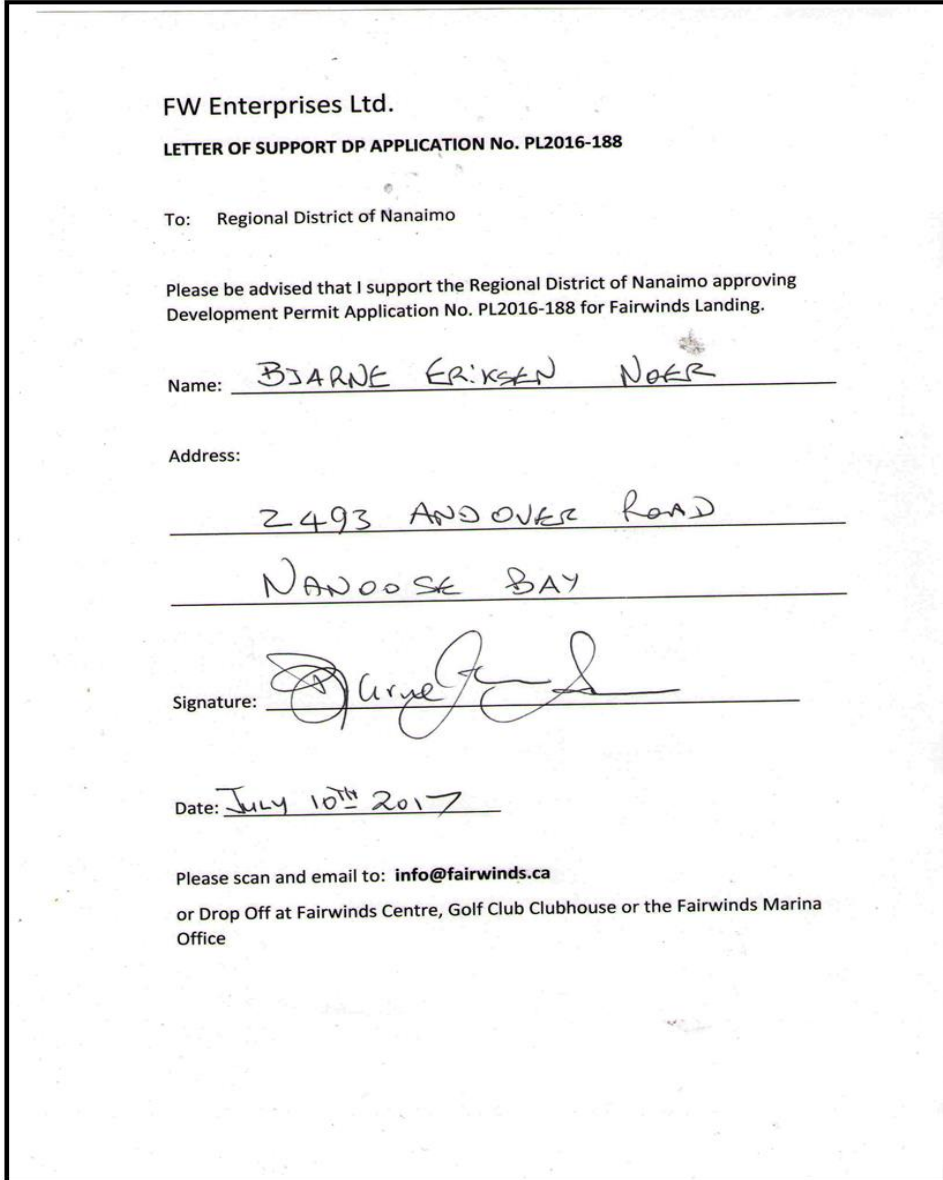 FW Enterprises Ltd.
LETTER OF SUPPORT DP APPLICATION No. PL2016-188
To: Regional District of Nanaimo
Please be advised that I support the Regional District of Nanaimo approving
Development Permit Application No. PL2016-188 for Fairwinds Landing.
Name: BJARNE ERIKSEN NOER
Address:
2493 ANDOVER ROAD
NANOOSE BAY
Signature: Bjarne
Date: JULY 10TH 2017
Please scan and email to: info@fairwinds.ca
or Drop Off at Fairwinds Centre, Golf Club Clubhouse or the Fairwinds Marina
Office